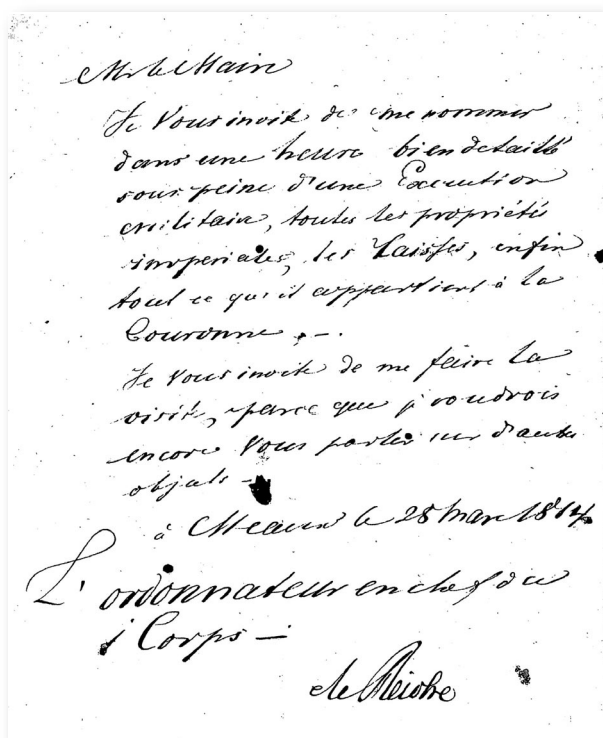 Mr le Maire
Je Vous invite de me nommer
dans une heure bien detaillé
sous peine d'une Execution
militaire, toutes les propriétés
imperiales, les Caisses, enfin
tout ce qui appartient à la
Couronne. —
Je Vous invite de me faire la
visite, parce que j voudrois
encore Vous parler sur d'autres
objets —
à Meaux le 28 Mars 1814.
L'ordonnateur en chef du
1 Corps —
de